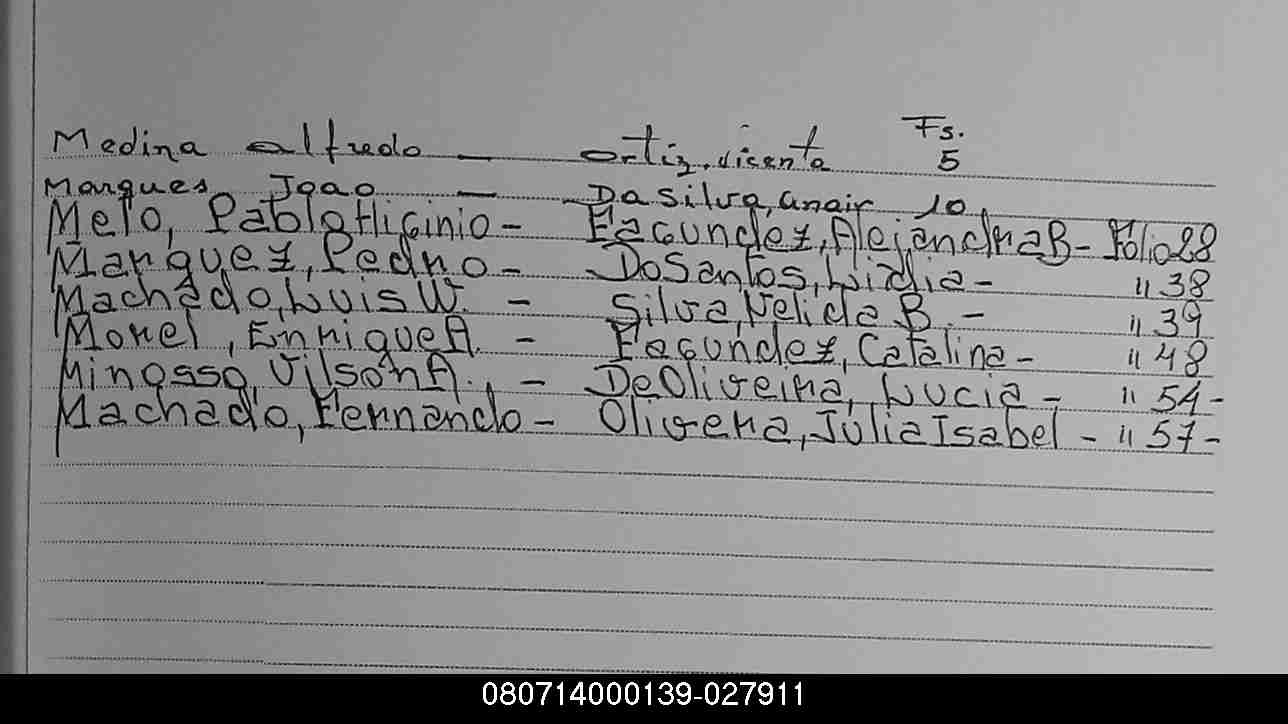 Fs.
Medina alfredo — ortiz, vicenta 5
Marques Joao — Da Silva, anair 10
Melo, Pablo Higinio - Facundez, Alejandra B - Folio 28
Marquez, Pedro - Do Santos, Lidia - " 38
Machado, Luis W. - Silva, Nelida B. - " 39
Morel, Enrique A. - Facundez, Catalina - " 48
Minosso, Vilson A., - De Oliveira, Lucia - " 54-
Machado, Fernando - Olivera, Julia Isabel - " 57-
080714000139-027911